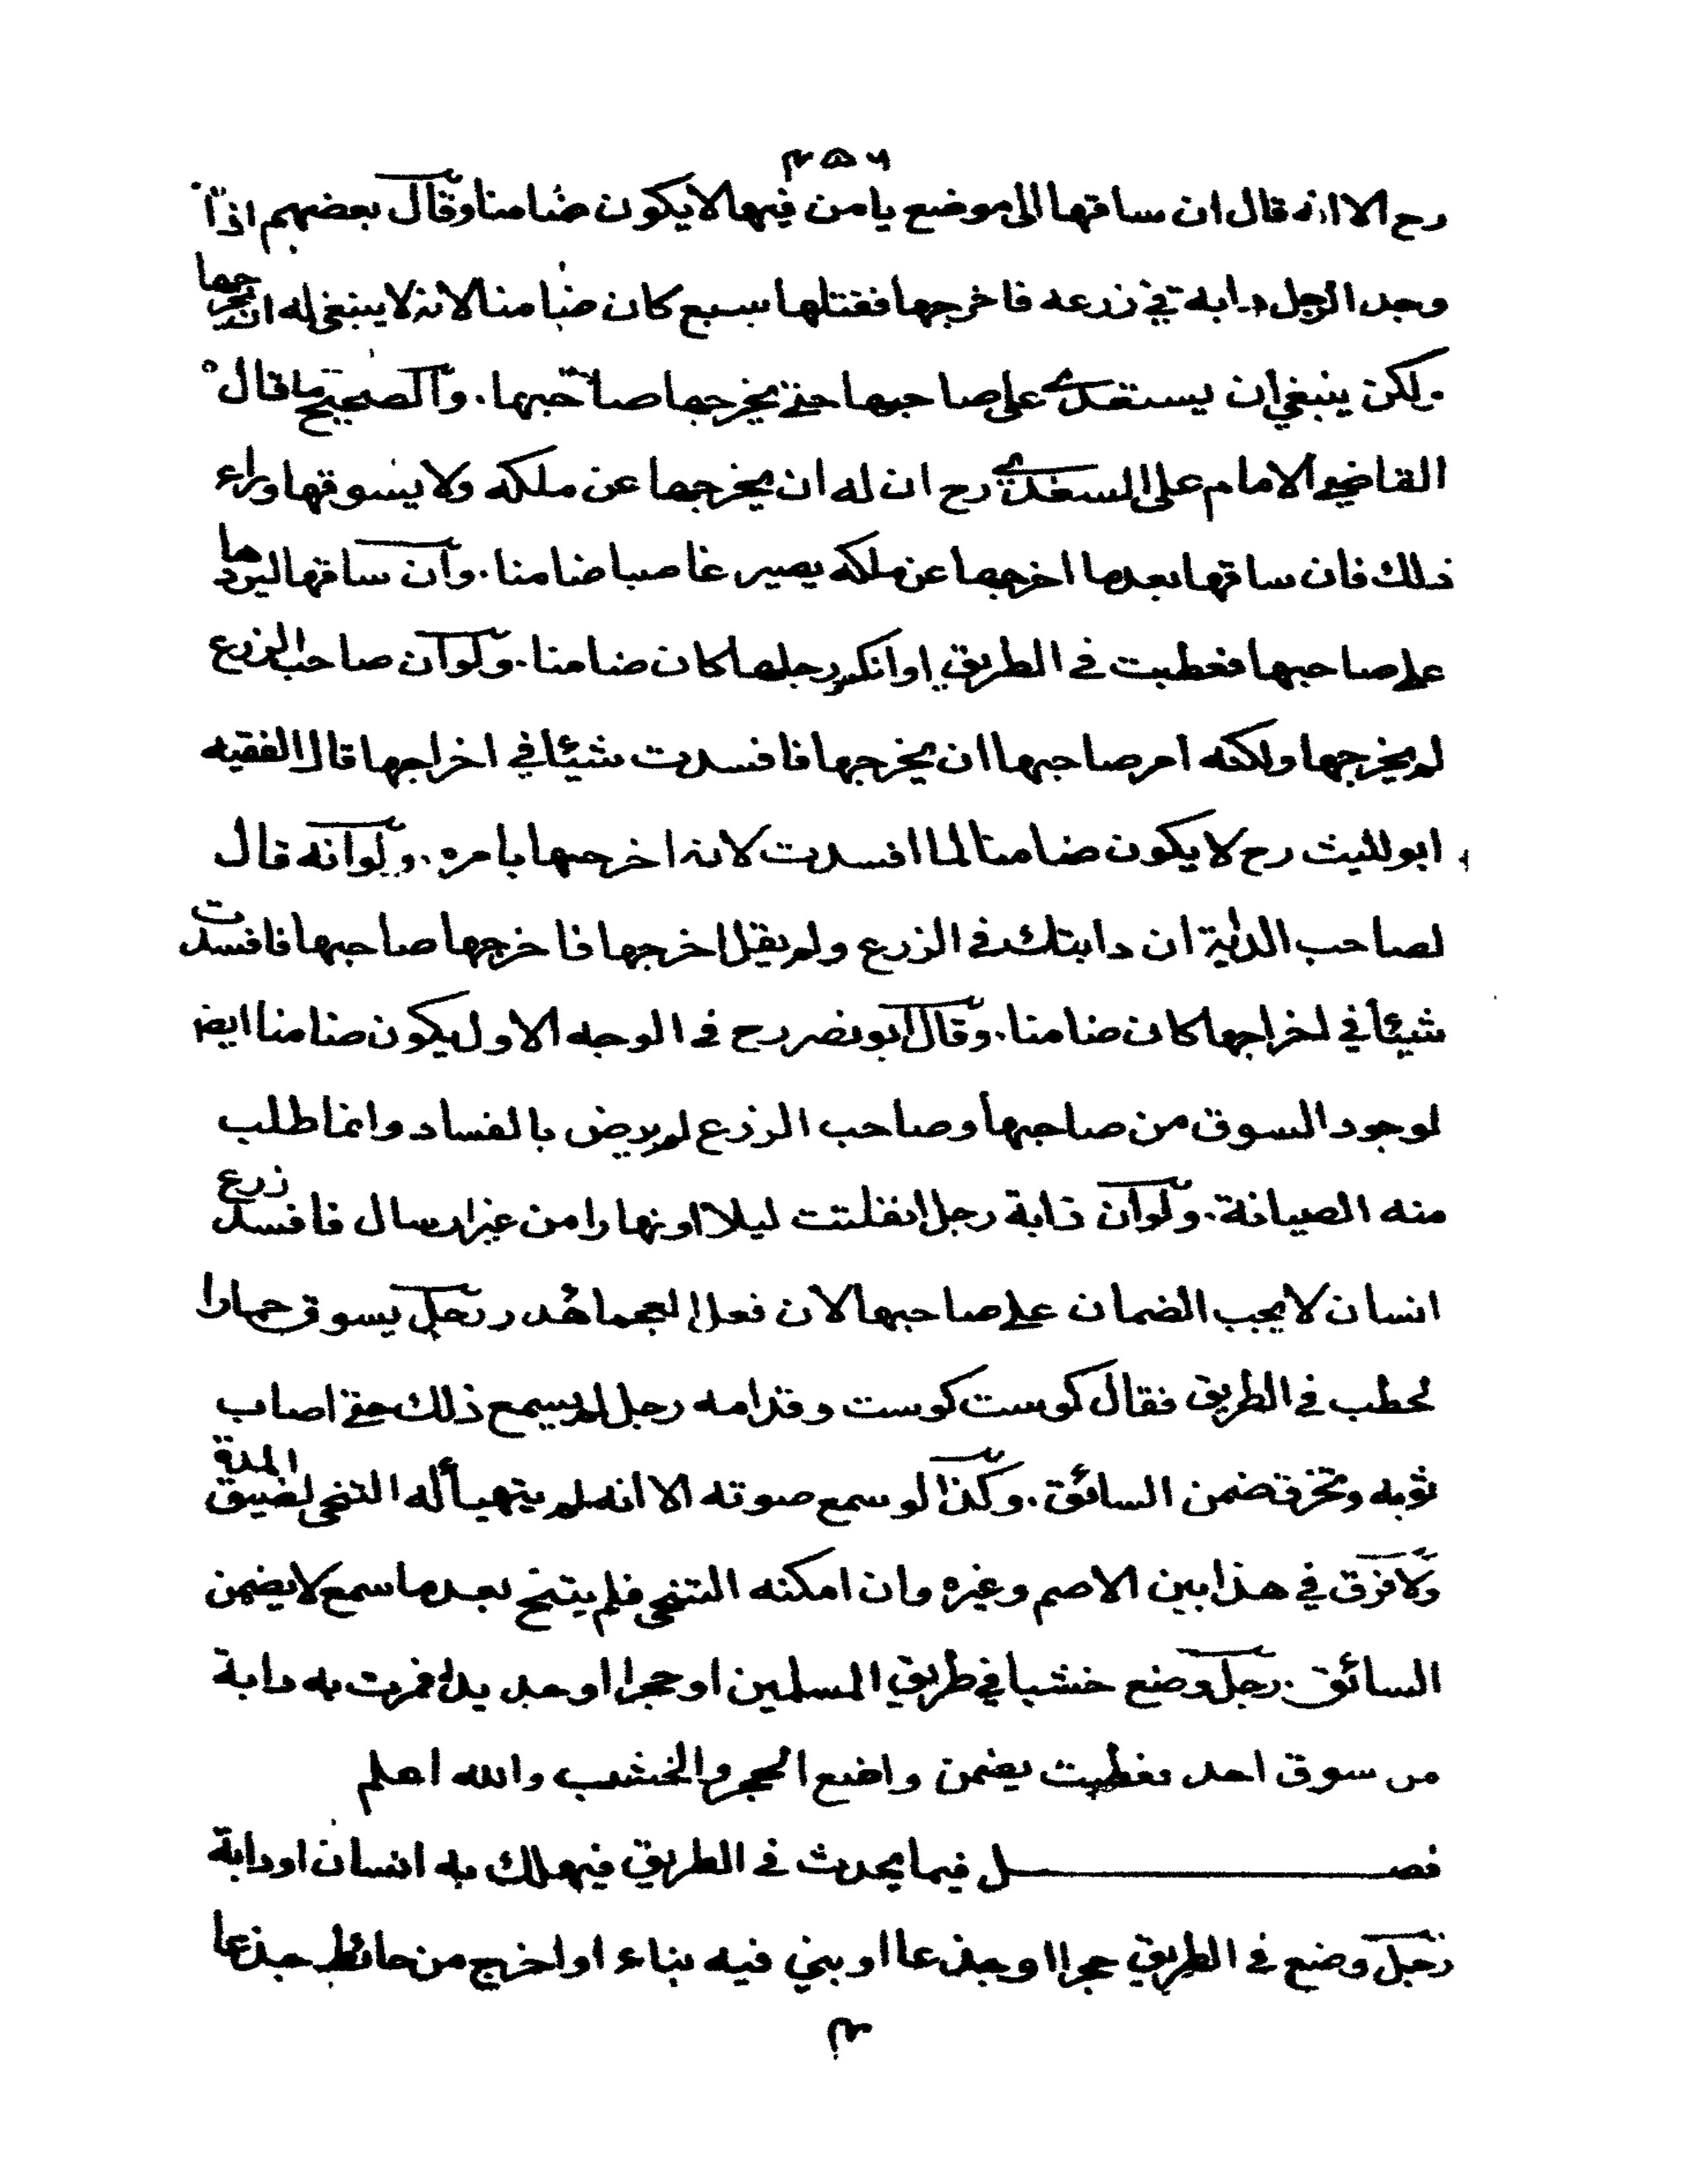 ٤٥٦
رح الا انه قال ان ساقها الى موضع يامن فيها لا يكون ضامنا وقال بعضهم اذا
وجد الرجل دابة في زرعه فاخرجها فقتلها سبع كان ضامنا لانه لا ينبغي له ان يخرجها
ولكن ينبغي ان يستعدي على صاحبها حتى يخرجها صاحبها. والصحيح ما قال
القاضي الامام علي السغدي رح ان له ان يخرجها عن ملكه ولا يسوقها وراء
ذلك فان ساقها بعدما اخرجها عن ملكه يصير غاصبا ضامنا. وان ساقها ليردها
على صاحبها فعطبت في الطريق او انكسر رجلها كان ضامنا. ولو ان صاحب الزرع
لم يخرجها ولكنه امر صاحبها ان يخرجها فافسدت شيئا في اخراجها قال الفقيه
ابو الليث رح لا يكون ضامنا لما افسدت لانه اخرجها بامره. ولو انه قال
لصاحب الدابة ان دابتك في الزرع ولم يقل اخرجها فاخرجها صاحبها فافسدت
شيئا في اخراجها كان ضامنا. وقال ابو نصر رح في الوجه الاول يكون ضامنا ايض
لوجود السوق من صاحبها وصاحب الزرع لم يرض بالفساد وانما طلب
منه الصيانة. ولو ان دابة رجل انفلتت ليلا او نهارا من غير ارسال فافسد زرع
انسان لا يجب الضمان على صاحبها لان فعل العجما هدر رجل يسوق حمارا
لحطب في الطريق فقال كوست كوست وقدامه رجل لم يسمع ذلك حتى اصاب
ثوبه وتخرق ضمن السائق. وكذا لو سمع صوته الا انه لم يتهيأ له التنحي لضيق المدة
ولا فرق في هذا بين الاصم وغيره وان امكنه التنحي فلم يتنح بعد ما سمع لا يضمن
السائق. رجل وضع خشبا في طريق المسلمين او حجرا او حديدا فمرت به دابة
من سوق احد فعطبت يضمن واضع الحجر والخشب والله اعلم
فصل فيما يحدث في الطريق فيهلك به انسان او دابة
رجل وضع في الطريق حجرا او جذعا او بنى فيه بناء او اخرج من حائط جذعا